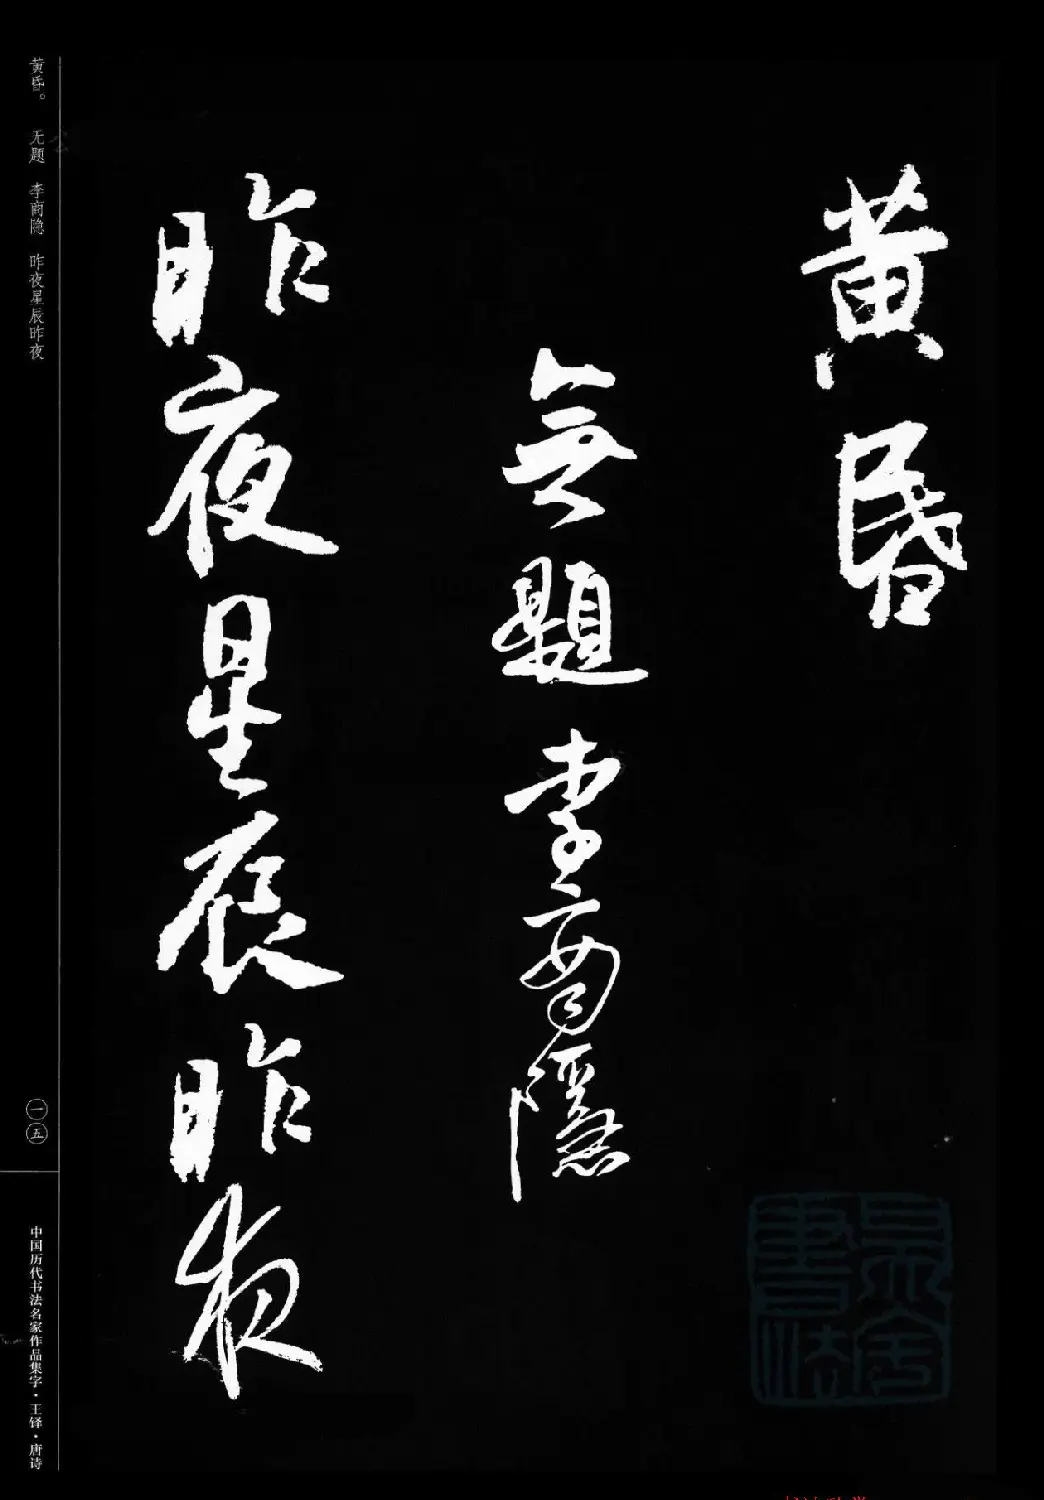 黄昏
無題 李商隱
昨夜星辰昨夜
黄昏。 无题 李商隐 昨夜星辰昨夜
一五
中国历代书法名家作品集字·王铎·唐诗